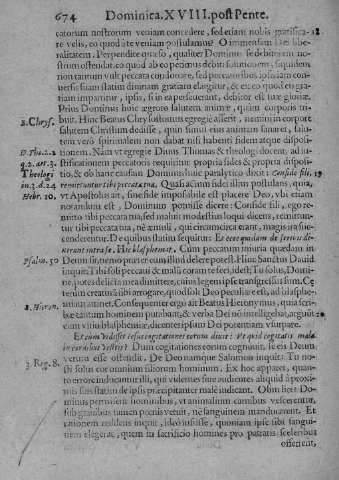 674 Dominica. XVIII. post Pente.
catorum nostrorum veniam concedere, sed etiam nobis gratificare 18
velis, eo quod a te veniam postulamus? O immensam Dei liberalitatem.
Perpendite quæso, qualiter Dominus se debitorem nostrum
ostendat, eo quod ab eo petimus condonationem, siquidem
non tantum vult peccata condonare, sed peccatoribus ipsi iam conversis
suam statim divinam gratiam elargitur, & ex eo quod eis gratiam
impartitur, ipsis, si in ea perseuerent, debitor est suæ gloriæ.
Prius Dominus huic ægroto salutem animæ, quàm corporis tribuit.
B. Chrys. Hinc Beatus Chrysostomus egregiè asserit, neminem in corpore
salutem Christum dedisse, quin simul eius animam sanaret, salutem
verò spiritualem non dabat nisi habenti fidem atque dispositionem.
D. Tho. 1.2 Nam vt egregiè Diuus Thomas & theologi docent, ad iustificationem
q. 2. art. 3. peccatoris requiritur propria fides & propria dispositio,
Theologi & ob hanc causam Dominus huic paralytico dixit: Confide fili, 19
in 3. d. 24 remittuntur tibi peccata tua. Quasi ac cùm fidei illius postulans, quia,
Hebr. 10. vt Apostolus ait, sine fide impossibile est placere Deo, vbi etiam
notandum est, Dominum potuisse dicere: Confide fili, ego remitto
tibi peccata tua, sed maluit modestius loqui dicens, remittuntur
tibi peccata tua, nè æmuli, qui circumcirca erant, magis ira succenderentur.
De quibus statim sequitur: Et ecce quidam de scribis dixerunt
intra se. Hic blasphemat. Cùm peccatum iniuria quædam in
Psalm. 50 Deum sit, nemo præter eum illud delere potest. Hinc Sanctus Dauid
inquit: Tibi soli peccaui & malum coram te feci, idest: Tu solus, Domine,
potes delicta mea dimittere, cuius legem ipse transgressus sum. Cæterùm
creatura sibi arrogare, quod soli Deo peculiare est, ad blasphemiam
attinet. Consequenter ergo ait Beatus Hieronymus, quia scribæ
B. Hieron. eum tantùm hominem putabant, & verba Dei nò intelligebat, arguūt 20
eum vitio blasphemiæ, dicentes ipsum Dei potentiam vsurpare.
Et cum vidisset Iesus cogitationes eorum dixit: Vt quid cogitatis mala
in cordibus vestris? Dum cogitationes eorum cognouit, se eis Deum
verum esse ostendit. De Deo namque Salomon inquit: Tu nosti
3. Reg. 8. solus cor omnium filiorum hominum. Ex hoc apparet, quanto
errore inducantur illi, qui videntes siue audientes aliquid à proximis
suis statim de ipsis præcipitanter malè iudicant. Olim licèt Dominus
permiserit hominibus, vt animalium carnibus vescerentur,
sub grauibus tamen pœnis vetuit, nè sanguinem manducarent. Et
rationem reddens inquit, ideo iussisse, quoniam ipse sibi sanguinem
elegerat, quem in sacrificio homines pro patratis sceleribus
offerrent,